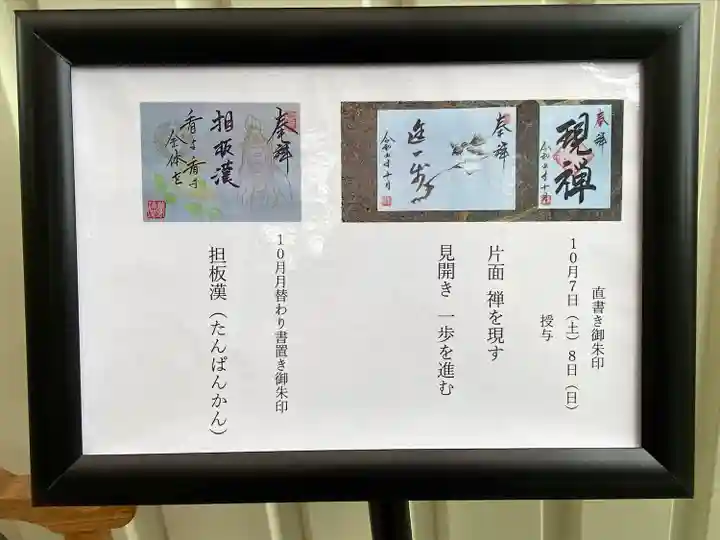 奉拝
現禅
令和五年十月
奉拝
進一歩
令和五年十月
直書き御朱印
10月7日（土）8日（日）
授与
片面 禅を現す
見開き 一歩を進む
奉拝
担板漢
看よ看よ
全体を
10月月替わり書置き御朱印
担板漢（たんぱんかん）